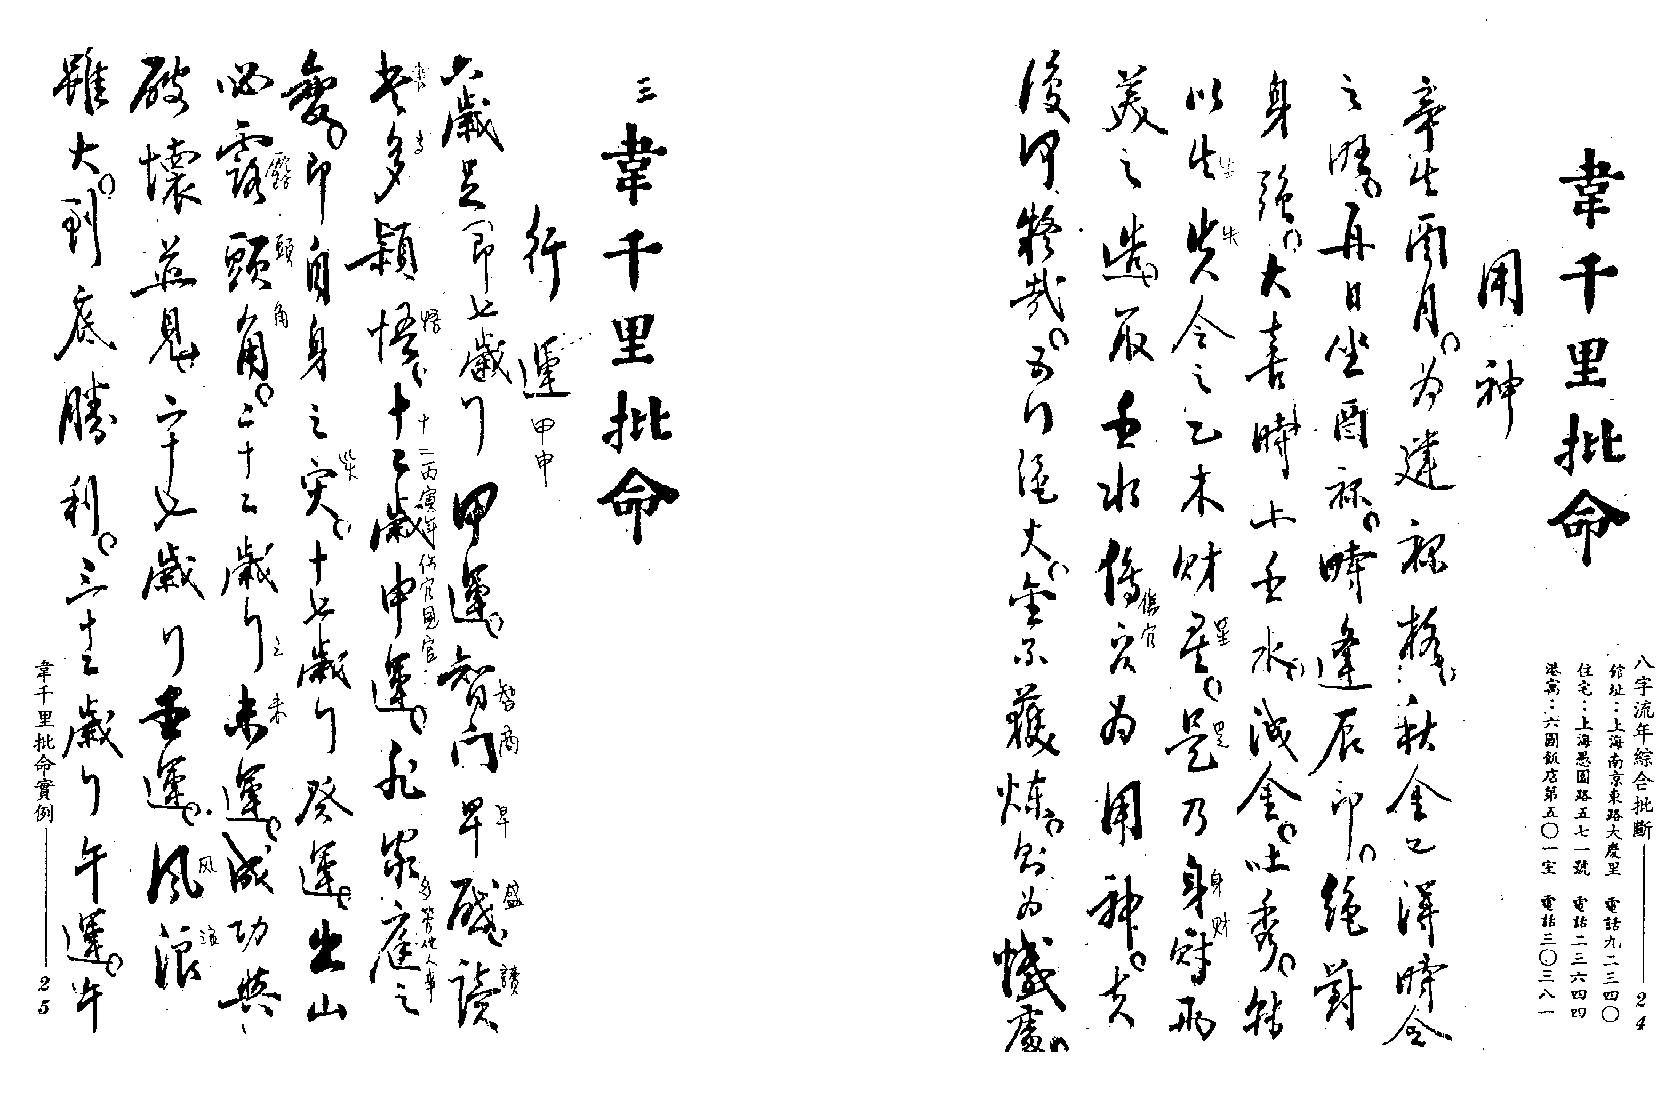 八字流年綜合批斷 24
館址：上海南京東路大慶里 電話九二三四〇
住宅：上海愚園路五七一號 電話二三六四四
港寓：六國飯店第五〇一室 電話三〇三八一
韋千里批命
用神
辛生酉月。為建祿格。秋金已得時令
之勝。再日坐酉祿。時逢辰印。絕對
身強。大喜時上壬水。洩金。吐秀。轉
以生失令之乙木財星。是乃身財兩
美之造。取壬水傷官為用神。夫
復何疑哉。五行火。金不獲煉。則為憾處
三
韋千里批命
行運 甲申
六歲足即七歲行甲運。智門早啟。讀
書多穎悟。十二歲申運。非家庭之
十二丙寅年傷官見官
變。即自身之災。十七歲行癸運。出山
必露頭角。二十二歲行未運。成功與
破壞並見。二十七歲行壬運。風浪
雖大。到底勝利。三十二歲行午運。午
韋千里批命實例 25